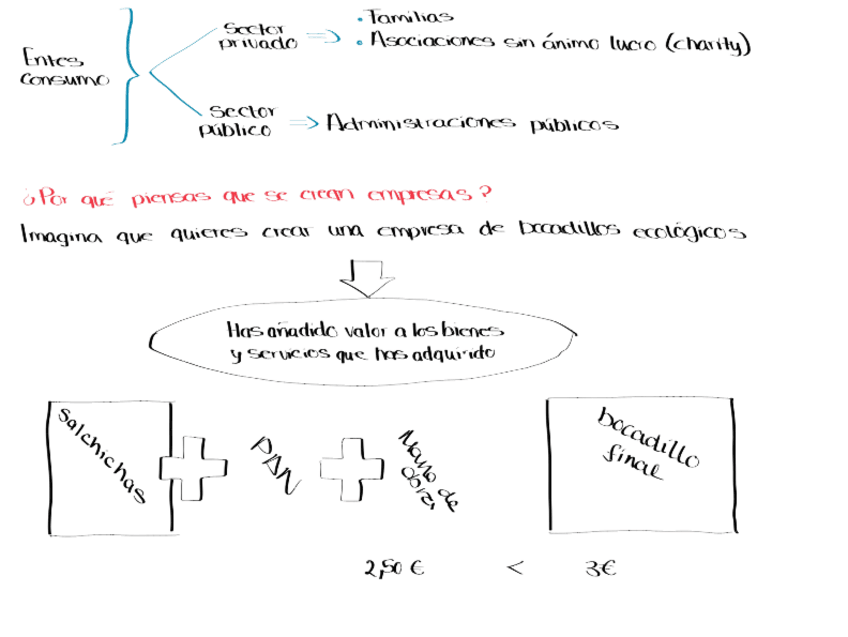 Entes
consumo
Sector
privado
⇒
· Familias
· Asociaciones sin ánimo lucro (charity)
Sector
público
⇒ Administraciones públicos
¿Por qué piensas que se crean empresas?
Imagina que quieres crear una empresa de bocadillos ecológicos
Has añadido valor a los bienes
y servicios que has adquirido
salchichas
+
PAN
+
Mano de
obra
bocadillo
final
2,50 € < 3€